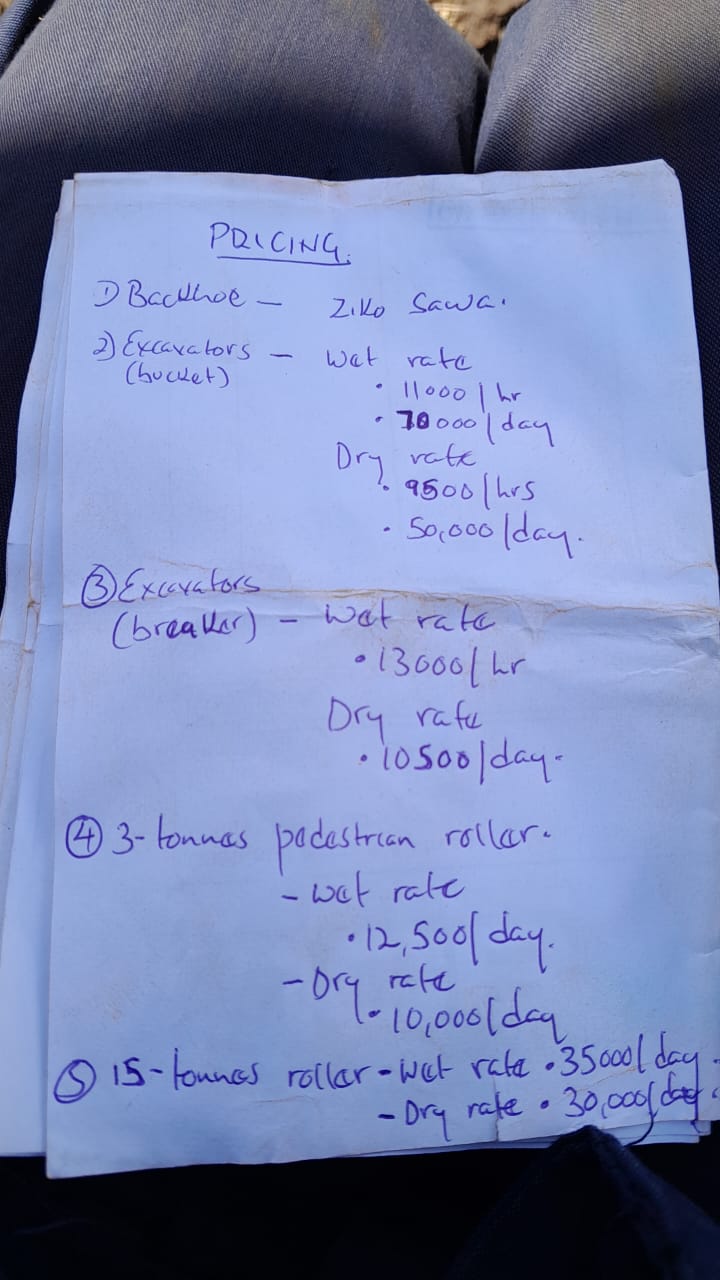 PRICING.
1) Backhoe - Ziko Sawa.
2) Excavators - Wet rate
(bucket)
• 11000/hr
• 70000/day
Dry rate
• 9500/hrs
• 50,000/day.
③ Excavators
(breaker) - Wet rate
• 13000/hr
Dry rate
• 10500/day.
④ 3-tonnes pedestrian roller.
- Wet rate
• 12,500/day.
- Dry rate
• 10,000/day
⑤ 15-tonnes roller - Wet rate • 35000/day.
- Dry rate • 30,000/day.